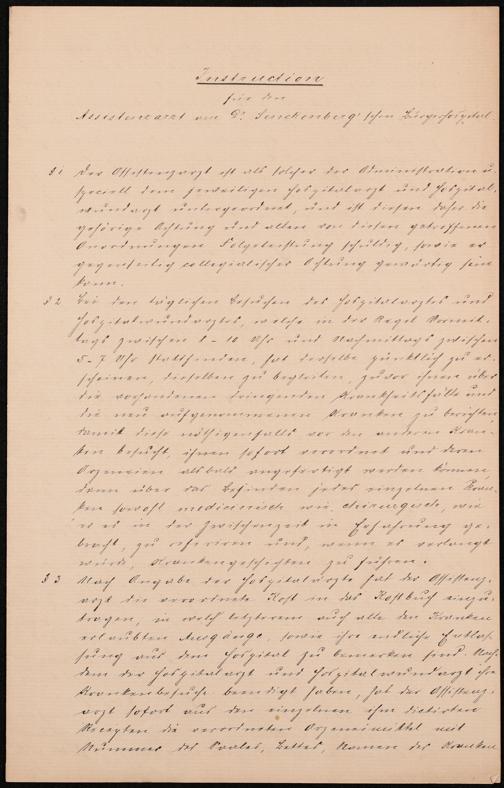 Instruction
für den
Assistenzarzt am Dr. Senckenberg'schen Bürgerhospital
§ 1 Der Assistenzarzt ist als solcher der Administration u.
speciell dem jeweiligen Hospitalarzt und Hospital-
wundarzt untergeordnet, und ist diesen daher die
gehörige Achtung und allen von diesen getroffenen
Anordnungen Folgeleistung schuldig, sowie er
gegenseitig collegialischer Achtung gewärtig sein
kann.
§ 2 Bei den täglichen Besuchen des Hospitalarztes und
Hospitalwundarztes, welche in der Regel Vormit-
tags zwischen 8 - 10 Uhr und Nachmittags zwischen
5 - 7 Uhr stattfinden, hat derselbe pünktlich zu er-
scheinen, dieselben zu begleiten, zuvor ihnen über
die vorhandenen dringenden Krankheitsfälle und
die neu aufgenommenen Kranken zu berichten,
damit diese nöthigenfalls vor den anderen Kran-
ken besucht, ihnen sofort verordnet und deren
Arzneien alsbald angefertigt werden können,
dann über das Befinden jedes einzelnen Kran-
ken sowohl medicinisch wie chirurgisch, wie
er es in der Zwischenzeit in Erfahrung ge-
bracht, zu referiren und, wenn es verlangt
würde, Krankengeschichten zu führen.
§ 3 Nach Angabe der Hospitalärzte hat der Assistenz-
arzt die verordnete Kost in das Kostbuch einzu-
tragen, in welch letzterem auch alle den Kranken
erlaubten Ausgänge, sowie ihre endliche Entlas-
sung aus dem Hospital zu bemerken sind. Nach-
dem der Hospitalarzt und Hospitalwundarzt ihre
Krankenbesuche beendigt haben, hat der Assistenz-
arzt sofort aus den einzelnen ihm dictirten
Recepten die verordneten Arzneimittel mit
Nummer des Saales, Bettes, Namen der Kranken